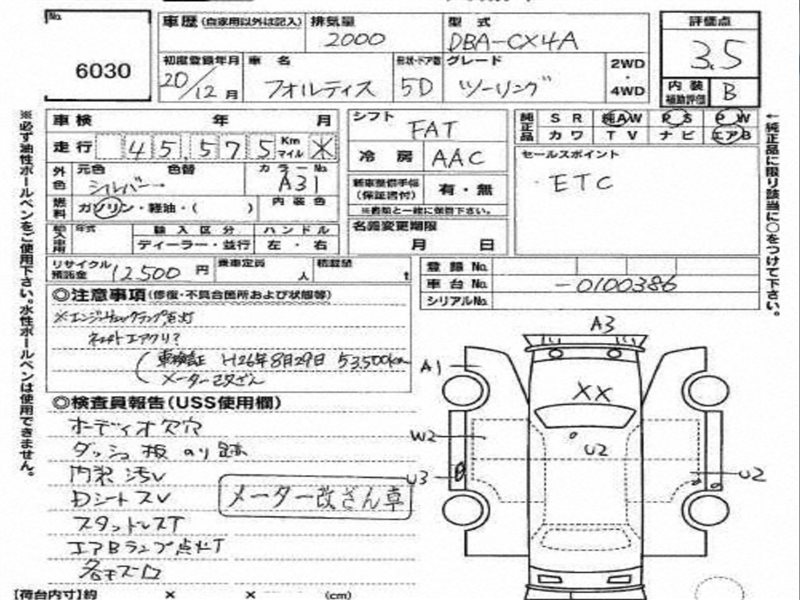 No.
6030
車歴 (自家用以外は記入)
排気量
2000
型式
DBA-CX4A
評価点
3.5
内装
補助評価
B
初度登録年月
20/12月
車名
フォルティス
形状・ドア数
5D
グレード
ツーリング
2WD
・
4WD
※必ず油性ボールペンをご使用下さい。水性ボールペンは使用できません。
車検 年 月
走行 45,575 Km マイル ※
外色
元色
シルバー
色替
カラーNo.
A31
燃料
ガソリン・軽油・( )
内装色
輸入車用
年式
輸入区分
ディーラー・並行
ハンドル
左・右
リサイクル
預託金
12,500円
乗車定員
人
積載量
t
シフト
FAT
冷房
AAC
新車整備手帳
(保証書付)
有・無
※書類と一緒に保管下さい。
名義変更期限
月 日
純正品
SR 純AW PS PW
カワ TV ナビ エアB
セールスポイント
・ETC
←純正品に限り該当に○をつけて下さい。
登録No.
車台No.
-0100386
シリアルNo.
◎注意事項(修復・不具合箇所および状態等)
※エンジンチェックランプ点灯
エアクリ?
(車検証 H26年8月29日 53,500km
メーター改ざん
◎検査員報告(USS使用欄)
オーディオ欠穴
ダッシュ板のり跡
内装汚レ
Dシートスレ
スタッドレスT
エアBランプ点灯
メーター改ざん車
A3
A1
XX
W2
U2
U3
U2
【荷台内寸】約 × × (cm)